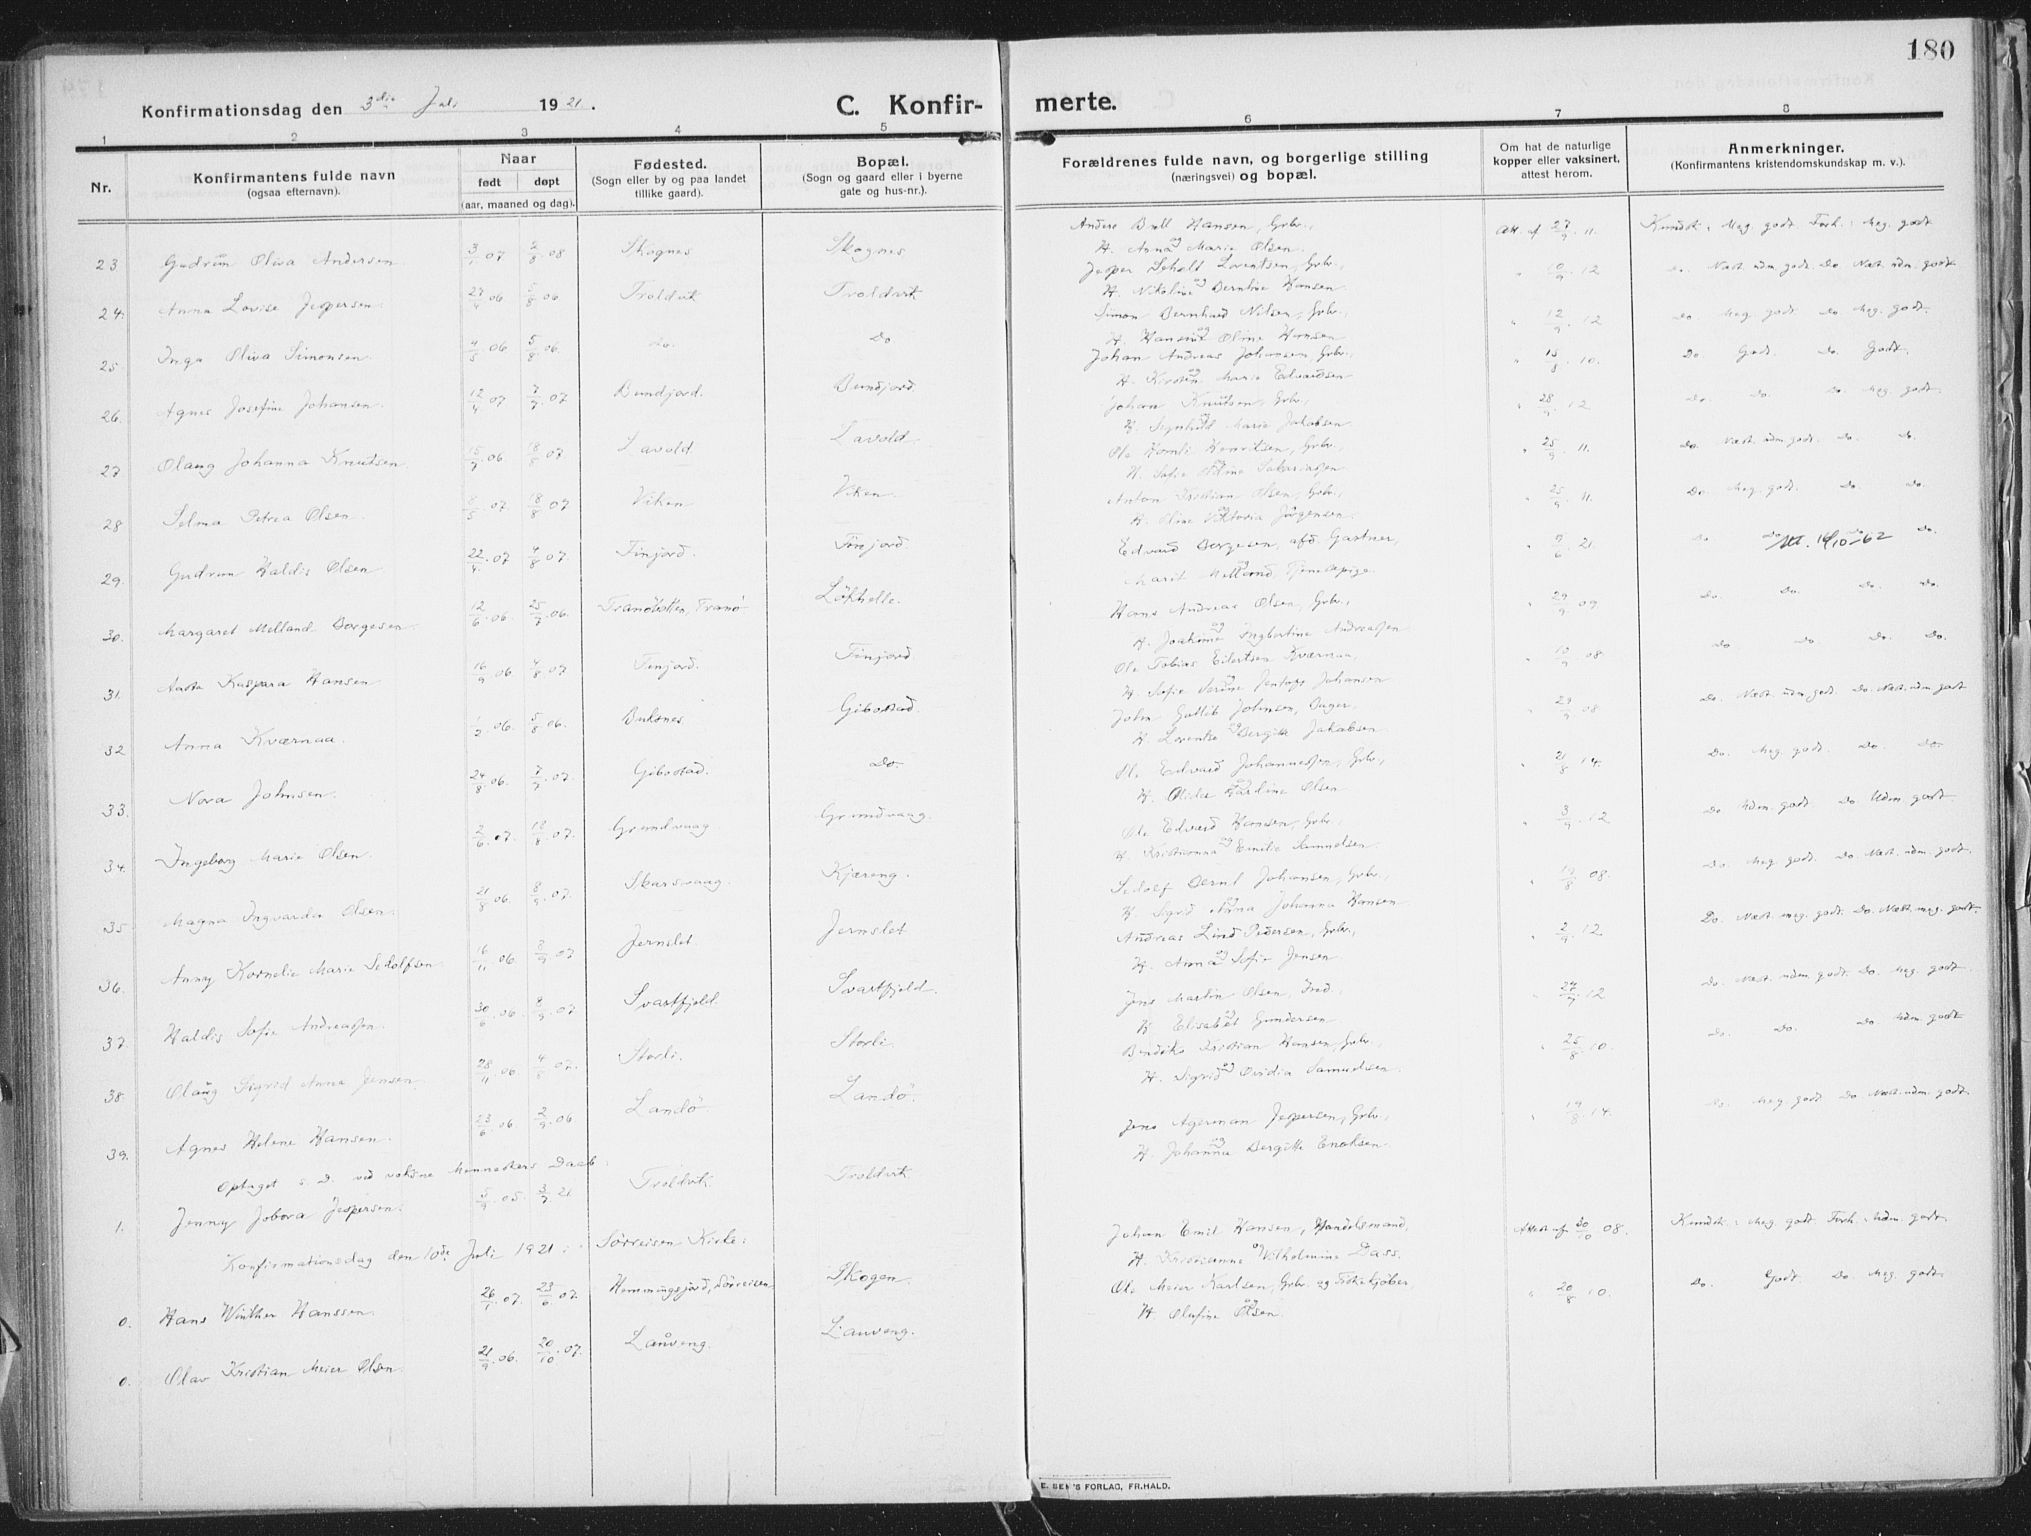 180
Konfirmationsdag den 3die Juli 1921.
C. Konfir-
merte.
1 2 3 4 5 6 7 8
Nr.
Konfirmantens fulde navn
(ogsaa efternavn).
Naar
født døpt
(aar, maaned og dag).
Fødested.
(Sogn eller by og paa landet
tillike gaard).
Bopæl.
(Sogn og gaard eller i byerne
gate og hus-nr.).
Forældrenes fulde navn, og borgerlige stilling
(næringsvei) og bopæl.
Om hat de naturlige
kopper eller vaksinert,
attest herom.
Anmerkninger.
(Konfirmantens kristendomskundskap m. v.).
23 Gudrun Oliva Andersen 3/1 07 2/8 08 Skognes Skognes
Hansen, Grbr.,
H. Anna Marie Olsen.
Att. af 27/9 11. Kundsk.: Meg. godt Forh.: Meg. godt
24. Anna Lovise Jespersen. 06 5/8 06. Troldvik Troldvik
Jesper Schelt Lorentsen, Grbr.,
H. Nikoline Berntine Hansen
" 10/9 12 Do. Næst. udm. godt. Do. Næst. udm. godt
25. Inga Oliva Simonsen. 4/5 06 5/8 06. Do. Do
Simon Bernhard Nilsen, Grbr.,
H. Oline Hansen
" 12/9 12 Do. Meg. godt. Do. Meg. godt.
26. Agnes Josefine Johansen. 12/4 07 7/9 07 Bundjord. Bundjord
Johan Andreas Johansen, Grbr.,
H. Kirstine Marie Edvardsen
" 15/8 10. Do. Godt. Do. Godt.
27 Olaug Johanna Knutsen. 15/7 06 18/8 07 Lavold Lavold
Johan Knutsen, Grbr.,
H. Marie Jakobsen
" 28/9 12 Do. Do. Do. Meg. godt.
28 Selma Petrea Olsen. 8/5 07. 18/8 07 Viken Viken.
Ole Henritsen, Grbr.,
" 25/9 11. Do. Næst. udm. godt. Do. Do.
29. Gudrun Haldis Olsen 22/4 07 4/8 07. Finjord. Finjord.
Anton Kristian Olsen, Grbr.,
H. Oline Viktoria Jörgensen.
" 25/9 11. Do. Meg. godt. Do. Do.
30. Margaret Melland Borgesen. 12/6 06. 25/7 06. Tranöbotten, Tranö Lökhelle.
Edvard Borgesen, afd. Gartner,
Marit Melland, Tjenestepige.
" 7/6 21. Do Do. Do. Do.
31. Aasta Kaspara Hansen 16/9 06 4/8 07 Finjord. Finjord
Hans Andreas Olsen, Grbr.,
H. Joakime Ingbertine Andreassen
" 29/9 09 Do. Do. Do. Do.
32 Anna Kværnaa. 1/2 06 5/8 06. Buksnes Gibostad.
Ole Tobias Eilertsen Kværnaa,
H. Sofie Johansen
" 10/9 08 Do. Do. Do. Do.
33. Nora Johnsen. 24/8 06. 7/7 07. Gibostad. Do.
John Gotlib Johnsen, Bager,
H. Lorentse Bergitte Jakobsen.
" 29/9 08 Do. Næst. udm. godt. Do. Næst. udm. godt
34. Ingeborg Marie Olsen. 2/6 07. 18/8 07. Grundvaag Grundvaag.
Ole Edvard Johannessen, Grbr.,
H. Karoline Olsen
" 21/8 14. Do. Meg. godt. Do. Do.
35 Magna Ingvarda Olsen. 21/8 06. 8/9 07. Skarsvaag. Kjæreng.
Ole Edvard Hansen, Grbr.,
H. Kristianna Emilie Samuelsen.
" 3/9 12 Do Udm. godt Do. Udm. godt.
36. Anny Kornelie Marie Sedolfsen 16/11 06. 8/9 07 Jernslet. Jernslet
Sedolf Bernt Johansen, Grbr.,
H. Sigrid Anna Johanna Hansen
" 19/8 08. Do. Meg. godt. Do. Næst. udm. godt.
37. Haldis Sofie Andreassen. 30/6 06. 8/9 07 Svartfjeld. Svartfjeld.
Andreas Lind Pedersen, Grbr.,
H. Anna Sofie Jensen
" 2/9 12 Do. Næst. meg. godt. Do. Næst. meg. godt.
38. Olaug Sigrid Anna Jensen 28/11 06. 4/8 07. Storli. Storli.
Jens Martin Olsen,
H. Elisabet Gundersen
12 Do. Næst. udm. godt Do. Meg. godt.
39. Agnes Helene Hansen. 23/6 06. 2/9 06 Landö Landö.
Bendiks Kristian Hansen, Grbr.,
H. Sigrid Ovidia Samuelsen.
" 25/8 10. Do. Do. Do Udm. godt
Optaget s. D. ved voksne Menneskers Daab:
1. Jenny Jobora Jespersen. 5/9 05 3/7 21 Troldvik Troldvik
Jens Agerman Jespersen, Grbr.,
H. Johanna Bergitte Enoksen.
" 19/8 14. Do. Meg. godt Do. Næst. udm. godt.
Konfirmationsdag den 10de Juli 1921 i Sörreisen Kirke:
0. Hans Winther Hanssen. 26/1 07. 23/6 07. Hemmingsjord, Sörreisen Skogen.
Johan Emil Hansen, Handelsmand,
H. Kristianne Wilhelmine Dass.
Attest af 30/10 08. Kundsk.: Meg. godt Forh.: Udm. godt
0. Olav Kristian Meier Olsen. 21/9 06. 20/10 07. Lauveng. Lauveng.
Ole Meier Karlsen, Grbr. og Fiskekjöber,
H. Olufine Olsen.
" 20/8 10. Do. Godt. Do. Meg. godt.
FORLAG, FR.HALD.